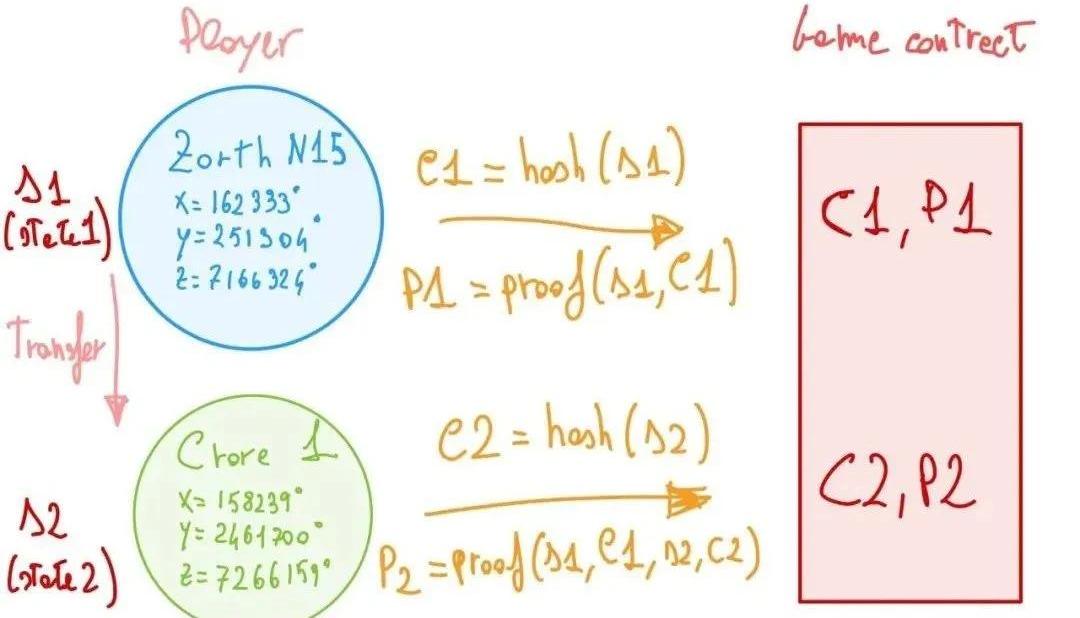 Player
Game contract
Zorth N15
X=162333°
Y=251304°
Z=7166324°
S1
(state1)
C1=hash(S1)
P1=proof(S1,C1)
C1,P1
Transfer
Crore 1
X=158239°
Y=2461700°
Z=7266159°
S2
(state2)
C2=hash(S2)
P2=proof(S1,C1,S2,C2)
C2,P2